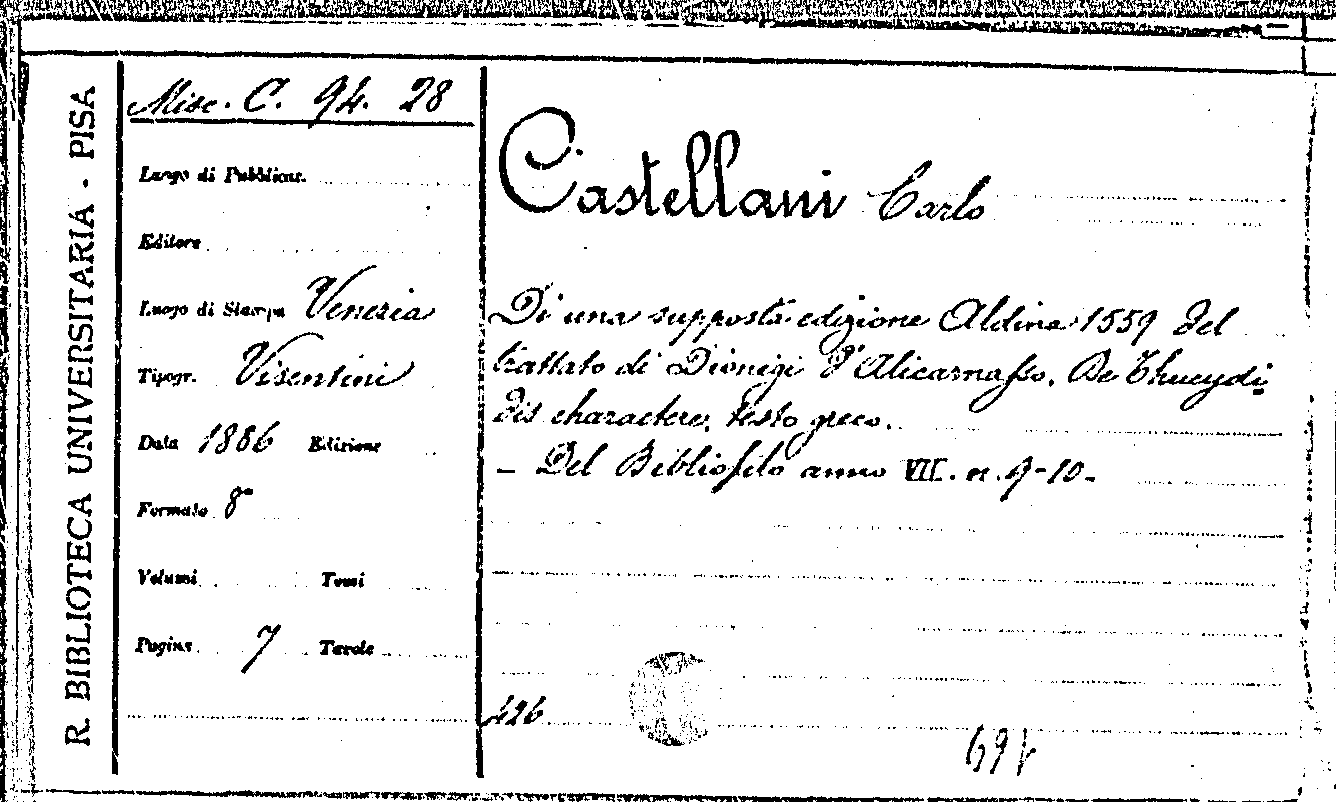 R. BIBLIOTECA UNIVERSITARIA - PISA
Misc. C. 94. 28
Luogo di Pubblicaz.
Editore
Luogo di Stampa Venezia
Tipogr. Visentini
Data 1886 Edizione
Formato 8°
Volumi Tomi
Pagine 7 Tavole
Castellani Carlo
Di una supposta edizione Aldina 1559 del
trattato di Dionigi d'Alicarnasso, De Thucydi-
dis charactere, testo greco.
- Del Bibliofilo anno VII. n. 9-10-
426